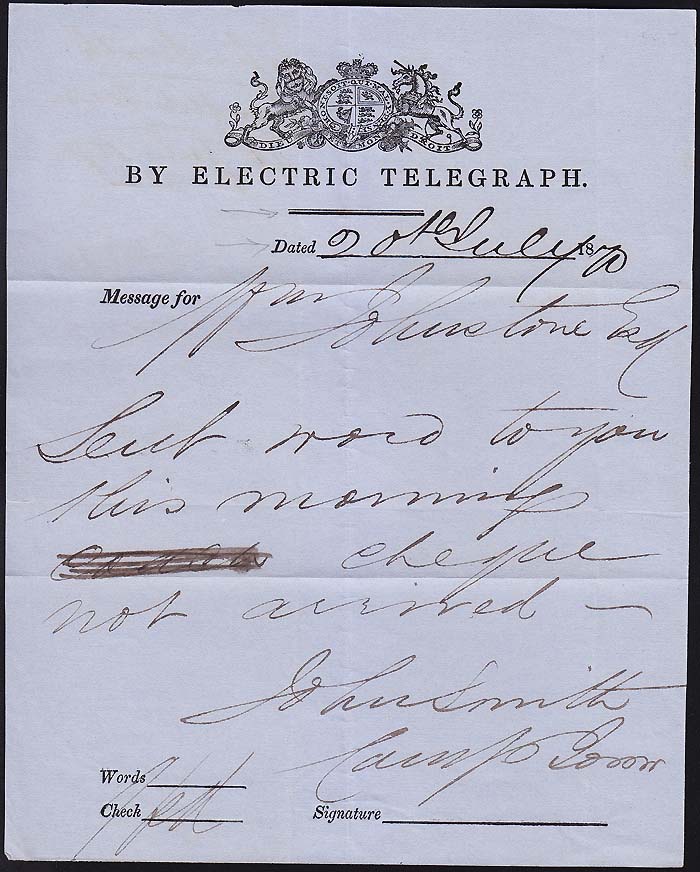 HONI SOIT QUI MAL Y PENSE
DIEU ET MON DROIT
BY ELECTRIC TELEGRAPH.
Dated 20th July 1870
Message for Wm Johnstone Esq
Sent word to you
this morning
cheque
not arrived —
John Smith
Camp Town
Words
Check
Signature